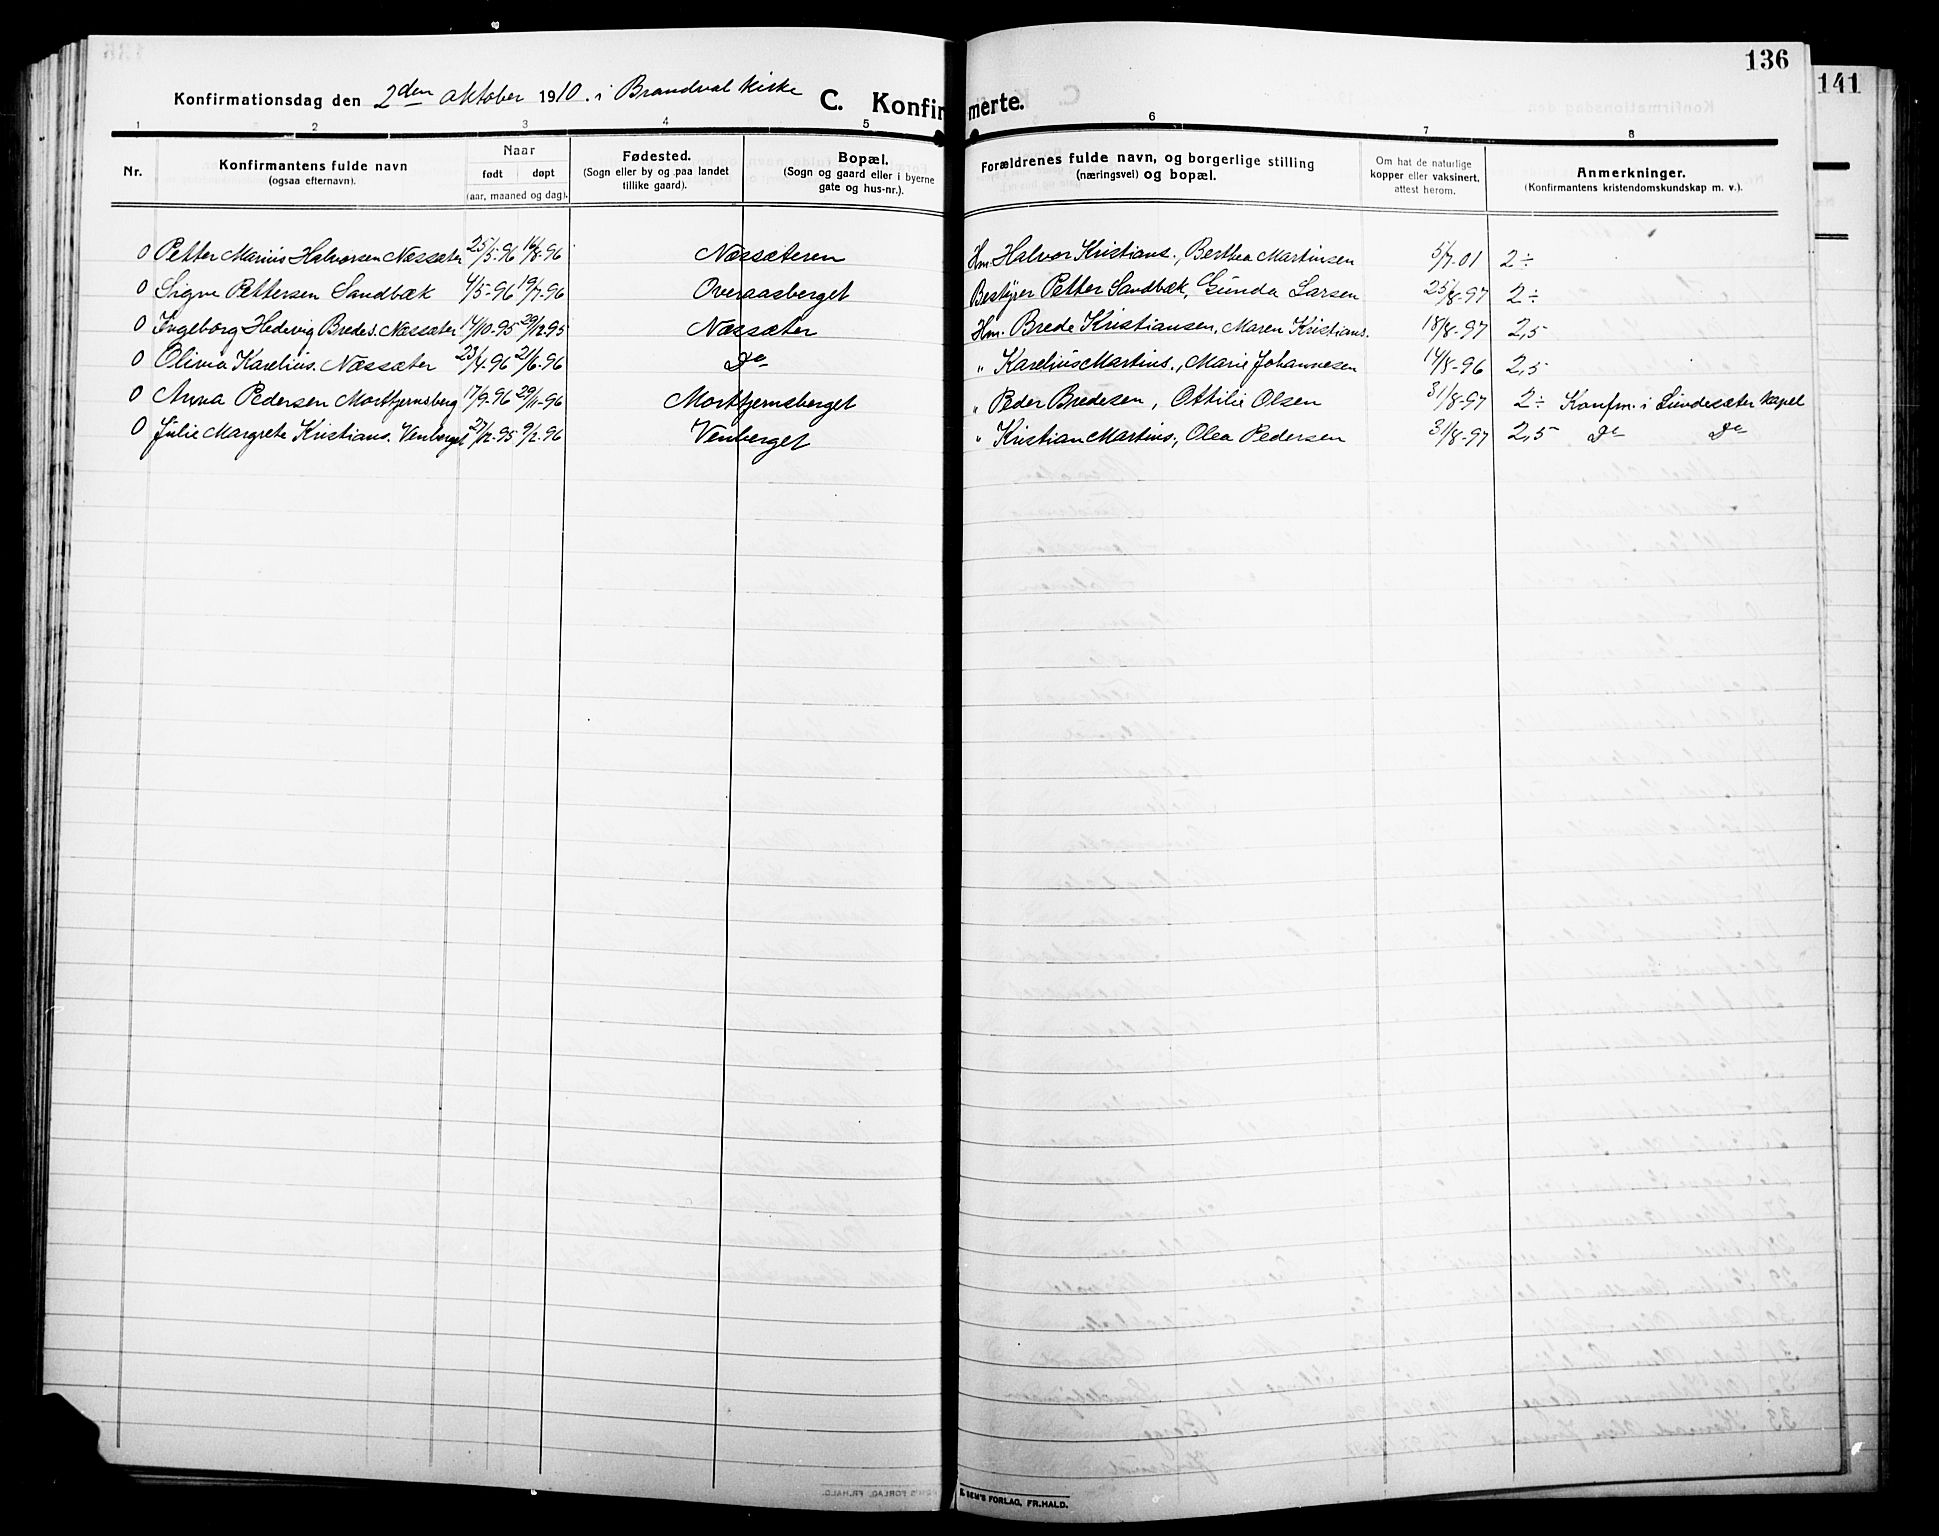 136
141
Konfirmationsdag den 2den oktober 1910. i Brandval kirke C. Konfirmerte.
1 2 3 4 5 6 7 8
Nr. Konfirmantens fulde navn (ogsaa efternavn). Naar født døpt (aar, maaned og dag). Fødested. (Sogn eller by og paa landet tillike gaard). Bopæl. (Sogn og gaard eller i byerne gate og hus-nr.). Forældrenes fulde navn, og borgerlige stilling (næringsvei) og bopæl. Om hat de naturlige kopper eller vaksinert. attest herom. Anmerkninger. (Konfirmantens kristendomskundskap m. v.).
0 Petter Marius Halvorsen Næssæter 25/5-96 16/8-96 Næssæteren Hm. Halvor Kristians., Berthea Martinsen 5/7-01 2÷
0 Signe Pettersen Sandbæk 4/5-96 19/7-96 Overaasberget Bestyrer Petter Sandbæk, Gunda Larsen 25/8-97 2÷
0 Ingeborg Hedevig Bredes. Næssæter 17/10-95 29/12-95 Næssæter Hm. Brede Kristiansen, Maren Kristians. 18/8-97 2,5
0 Olivia Karelius. Næssæter 23/4-96 21/6-96 Do " Karelius Martins., Marie Johannesen 14/8-96 2,5
0 Anna Pedersen Morttjernsberg 17/9-96 29/11-96 Morttjernsberget " Peder Bredesen, Ottilie Olsen 31/8-97 2÷ Konfm. i Lundersæter kapel
0 Julie Margrete Kristians. Venberget 27/12-95 9/2-96 Venberget " Kristian Martins., Olea Pedersen 31/8-97 2,5 Do Do
E. SEM'S FORLAG, FR.HALD.